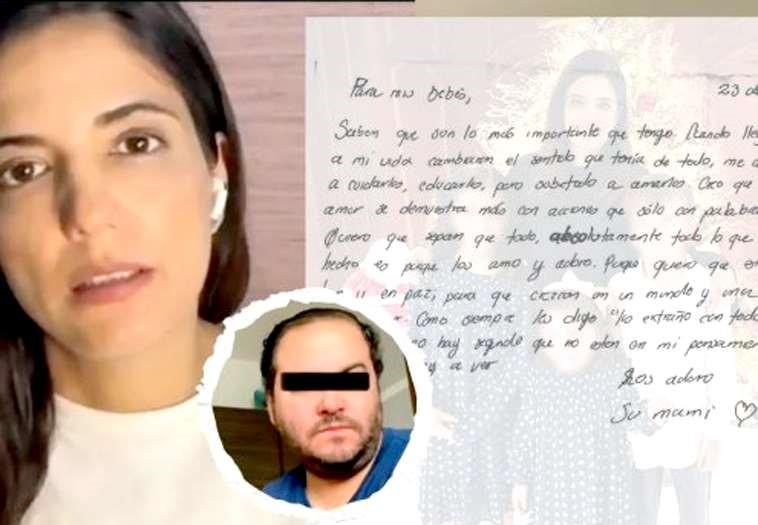 Para mis bebés,
23 de
Saben que son lo más importante que tengo. Cuando lle
a mi vida cambiaron el sentido que tenía de todo, me
a cuidarlos, educarlos, pero sobretodo a amarlos. Creo que
amor se demuestra más con acciones que sólo con palabra
Quiero que sepan que todo, absolutamente todo lo que
hecho es porque los amo y adoro. Porque quiero que
en paz, para que crezcan en un mundo y una
Como siempre les digo "los extraño con todo
no hay segundo que no esten en mi pensamien
a ver
Los adoro
Su mami